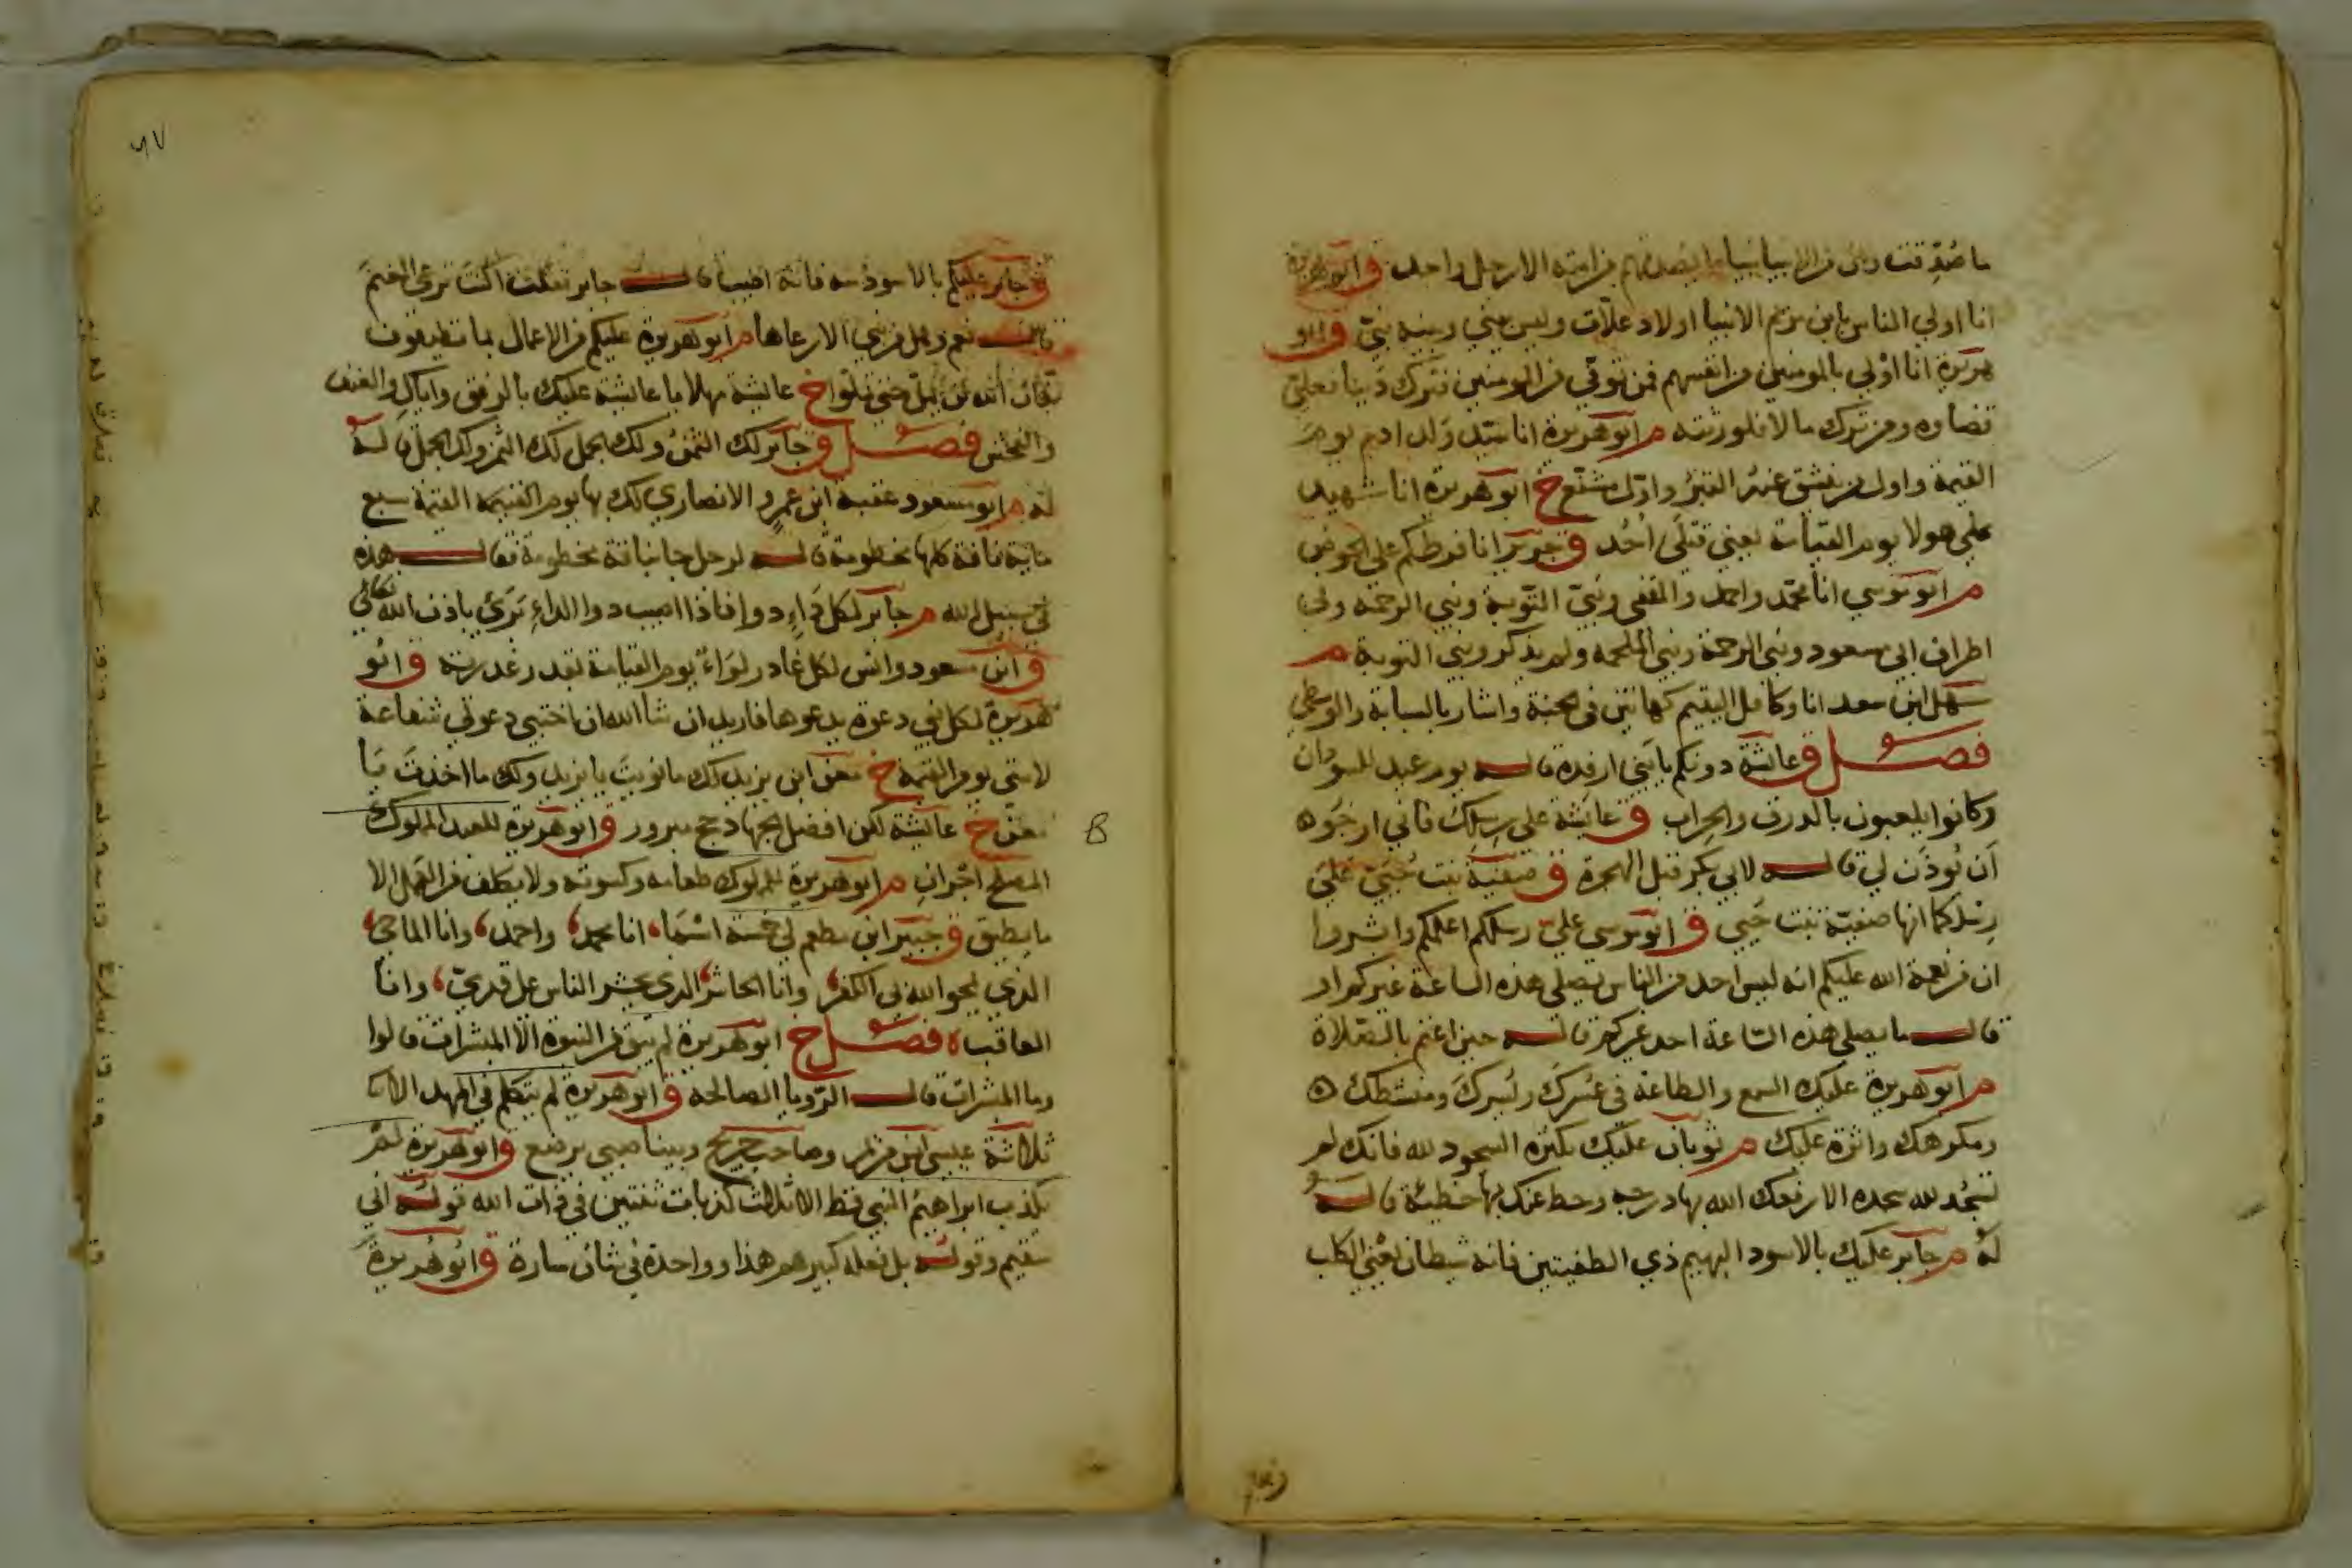 ما صُدِّقت وان من الانبيا نبيا ما يصدقه من امته الا رجل واحد ق ابو هريرة
انا اولي الناس بابن مريم الانبيا اولاد علات وليس بيني وبينه نبي ق ابو
هريرة انا اولي بالمومنين من انفسهم فمن توفي من المومنين فترك دينا فعلي
قضاوه ومن ترك مالا فلورثته م ابو هريرة انا سيد ولد ادم يوم
القيمة واول من ينشق عنه القبر واول مشفع خ ابو هريرة انا شهيد
علي هولا يوم القيامة يعني قتلي اُحُد ق جرير انا فرطكم علي الحوض
م ابو موسي انا محمد واحمد والمقفي ونبي التوبة ونبي الرحمة وفي
اطراف ابي مسعود ونبي الرحمة ونبي الملحمة ولم يذكر ونبي التوبة م
سهل ابن سعد انا وكافل اليتيم كهاتين في الجنة واشار بالسبابة والوسطي
فصل ق عائشة دونكم يا بني ارفدة قاله يوم عيد للسودان
وكانوا يلعبون بالدرق والحراب ق عائشة علي رسلك فاني ارجوه
ان يُوذن لي قاله لابي بكر قبل الهجرة ق صفية بنت حيي علي
رسلكما انها صفية بنت حيي ق ابو موسي علي رسلكم اعلمكم وابشروا
ان من نعمة الله عليكم انه ليس احد من الناس يصلي هذه الساعة غيركم او
قال ما يصلي هذه الساعة احد غيركم قاله حين اعتم بالصلاة
م ابو هريرة عليك السمع والطاعة في عسرك ويسرك ومنشطك ه
ومكرهك واثرة عليك م ثوبان عليك بكثرة السجود لله فانك لم
تسجد لله سجدة الا رفعك الله بها درجة وحط عنك بها خطيئة قاله
لهُ م جابر عليك بالاسود البهيم ذي الطفيتين فانه شيطان يعني الكلب
ق جابر عليكم بالاسود منه فانه اطيب قال جابر فقلت اكنت ترعي الغنم
قال نعم وهل من نبي الا رعاها م ابو هريرة عليكم من الاعمال بما تطيقون
فان الله لن يمل حتي تملوا خ عايشة مهلا يا عايشة عليك بالرفق واياك والعنف
والفحش فصل ق جابر لك الثمن ولك الجمل لك الثمن ولك الجمل قاله
له م ابو مسعود عقبة ابن عمرو الانصاري لك بها يوم القيمة القيمة سبع
ماية ناقة كلها مخطومة قاله لرجل جا بناقة مخطومة فقال هذه
في سبيل الله م جابر لكل داء دوا فاذا اصيب دوا الداء برئ باذن الله تعالي
ق ابن مسعود وانس لكل غادر لواءٌ يوم القيامة بقدر غدرته ق ابو
هريرة لكل نبي دعوة يدعوها فاريد ان شا الله ان اختبي دعوتي شفاعة
لامتي يوم القيمة خ معن ابن يزيد لك ما نويت يا يزيد ولك ما اخذت يا
معن خ عايشة لكن افضل الجهاد حج مبرور ق ابو هريرة للعبد المملوك
المصلح اجران م ابو هريرة للمملوك طعامه وكسوته ولا يكلف من العمل الا
ما يطيق ق جبير ابن مطعم لي خمسة اسما انا محمد واحمد وانا الماحي
الذي يمحو الله بي الكفر وانا الحاشر الذي يحشر الناس علي قدمي وانا
العاقب ه فصل خ ابو هريرة لم يبق من النبوة الا المبشرات قالوا
وما المبشرات قال الرويا الصالحة ق ابو هريرة لم يتكلم في المهد الا
ثلاثة عيسي ابن مريم وصاحب جريج وبينا صبي يرضع ق ابو هريرة لم
يكذب ابراهيم النبي قط الا ثلاث كذبات ثنتين في ذات الله قوله اني
سقيم وقوله بل فعله كبيرهم هذا وواحدة في شان سارة ق ابو هريرة